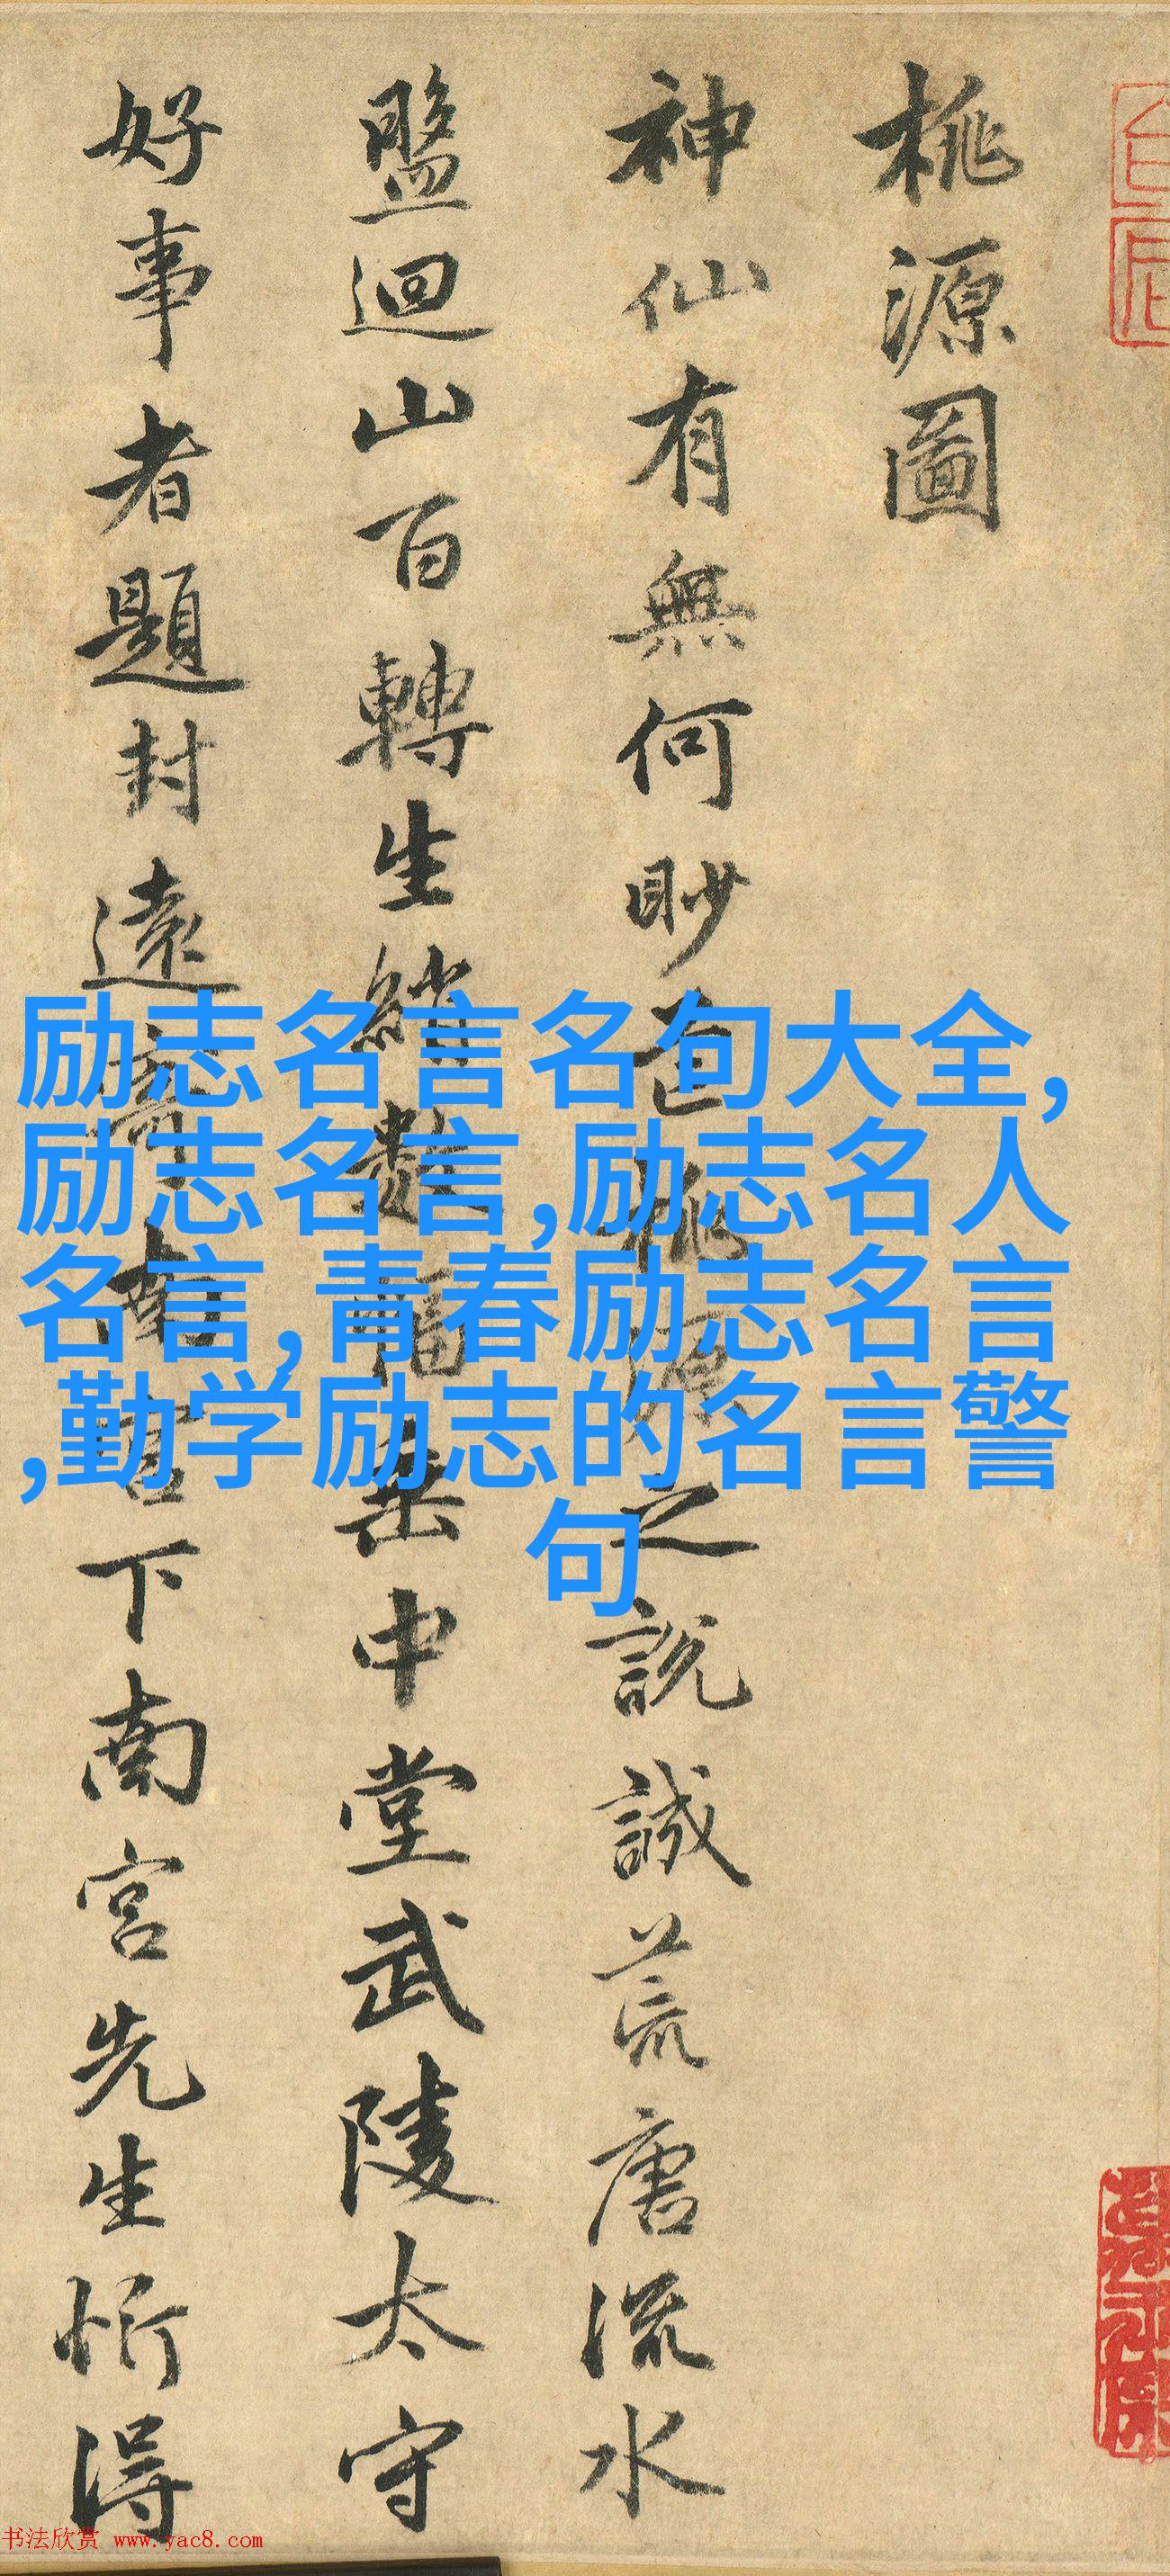 桃源圖
神仙有無何眇芒桃源之說誠荒唐流水
盤迴山百轉生綃數幅垂中堂武陵太守
好事者題封遠寄南宮下南宮先生忻得
励志名言名句大全,
励志名言,励志名人
名言,青春励志名言
,勤学励志的名言警
句
书法欣赏 www.yac8.com